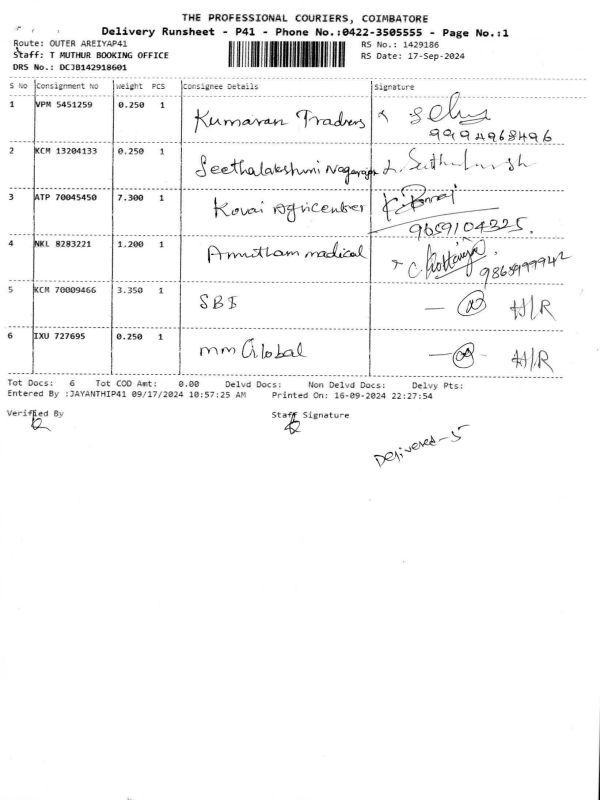 THE PROFESSIONAL COURIERS, COIMBATORE
Delivery Runsheet - P41 - Phone No.:0422-3505555 - Page No.:1
Route: OUTER AREIYAP41
Staff: T MUTHUR BOOKING OFFICE
DRS No.: DCJB142918601
RS No.: 1429186
RS Date: 17-Sep-2024
S No Consignment No Weight PCS Consignee Details Signature
1 VPM 5451259 0.250 1 Kumaran Traders
9994968496
2 KCM 13204133 0.250 1 Seethalakshmi Nagarajan
3 ATP 70045450 7.300 1 Kovai Agricenter
9659104325.
4 NKL 8283221 1.200 1 Amutham madical
9865999942
5 KCM 70009466 3.350 1 SBI H/R
6 IXU 727695 0.250 1 mm Global H/R
Tot Docs: 6 Tot COD Amt: 0.00 Delvd Docs: Non Delvd Docs: Delvy Pts:
Entered By :JAYANTHIP41 09/17/2024 10:57:25 AM Printed On: 16-09-2024 22:27:54
Verified By Staff Signature
Delivered-5